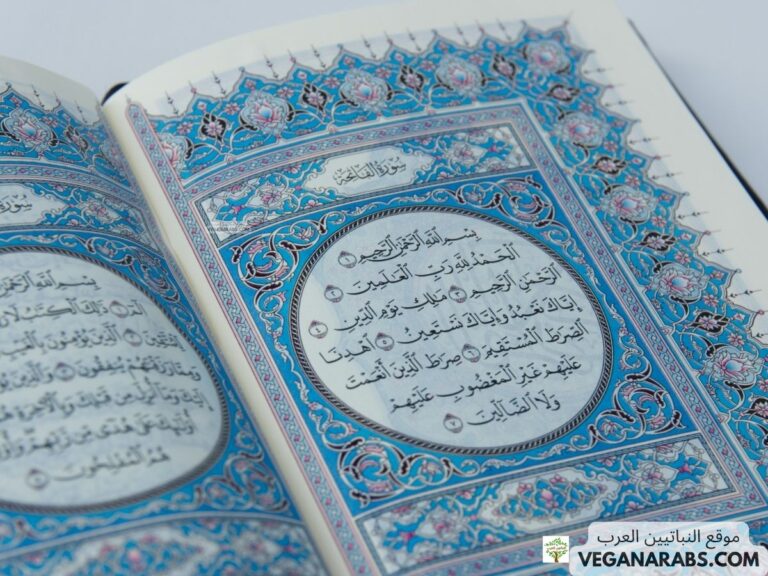 سُورَةُ الفَاتِحَةِ
بِسْمِ ٱللَّهِ ٱلرَّحْمَٰنِ ٱلرَّحِيمِ ١
ٱلْحَمْدُ لِلَّهِ رَبِّ ٱلْعَٰلَمِينَ ٢
ٱلرَّحْمَٰنِ ٱلرَّحِيمِ ٣ مَٰلِكِ يَوْمِ ٱلدِّينِ ٤
إِيَّاكَ نَعْبُدُ وَإِيَّاكَ نَسْتَعِينُ ٥ ٱهْدِنَا
ٱلصِّرَٰطَ ٱلْمُسْتَقِيمَ ٦ صِرَٰطَ ٱلَّذِينَ أَنْعَمْتَ
عَلَيْهِمْ غَيْرِ ٱلْمَغْضُوبِ عَلَيْهِمْ
وَلَا ٱلضَّآلِّينَ ٧
سُورَة
بِسْمِ ٱللَّهِ ٱلرَّحْمَٰنِ
الٓمٓ ١ ذَٰلِكَ ٱلْكِتَٰبُ لَا
لِّلْمُتَّقِينَ ٢ ٱلَّذِينَ يُؤْمِنُونَ بِٱلْغَيْبِ
وَمِمَّا رَزَقْنَٰهُمْ يُنفِقُونَ ٣ وَٱلَّذِينَ
إِلَيْكَ وَمَآ أُنزِلَ مِن قَبْلِكَ وَبِٱلْءَاخِرَةِ
أُو۟لَٰٓئِكَ عَلَىٰ هُدًى مِّن رَّبِّهِمْ
هُمُ ٱلْمُفْلِحُونَ ٥
موقع النباتيين العرب
VEGANARABS.COM